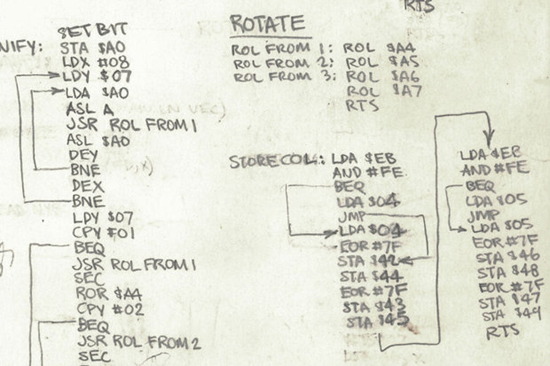 SET BIT
NIFY: STA $A0
LDX #08
LDY $07
LDA $A0
ASL A
JSR ROL FROM 1
ASL $A0
DEY
BNE
DEX
BNE
LDY $07
CPY #01
BEQ
JSR ROL FROM 1
SEC
ROR $A4
CPY #02
BEQ
JSR ROL FROM 2
SEC
RTS
ROTATE
ROL FROM 1: ROL $A4
ROL FROM 2: ROL $A5
ROL FROM 3: ROL $A6
ROL $A7
RTS
LDA $EB
AND #FE
BEQ
LDA $04
JMP
LDA $04
EOR #7F
STA $42
STA $44
EOR #7F
STA $43
STA $45
LDA $EB
AND #FE
BEQ
LDA $05
JMP
LDA $05
EOR #7F
STA $46
STA $48
EOR #7F
STA $47
STA $49
RTS